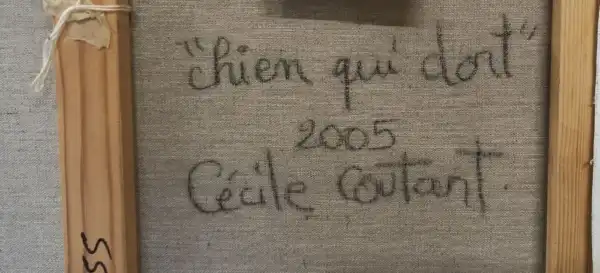 "chien qui dort"
2005
Cécile Coutant.
55